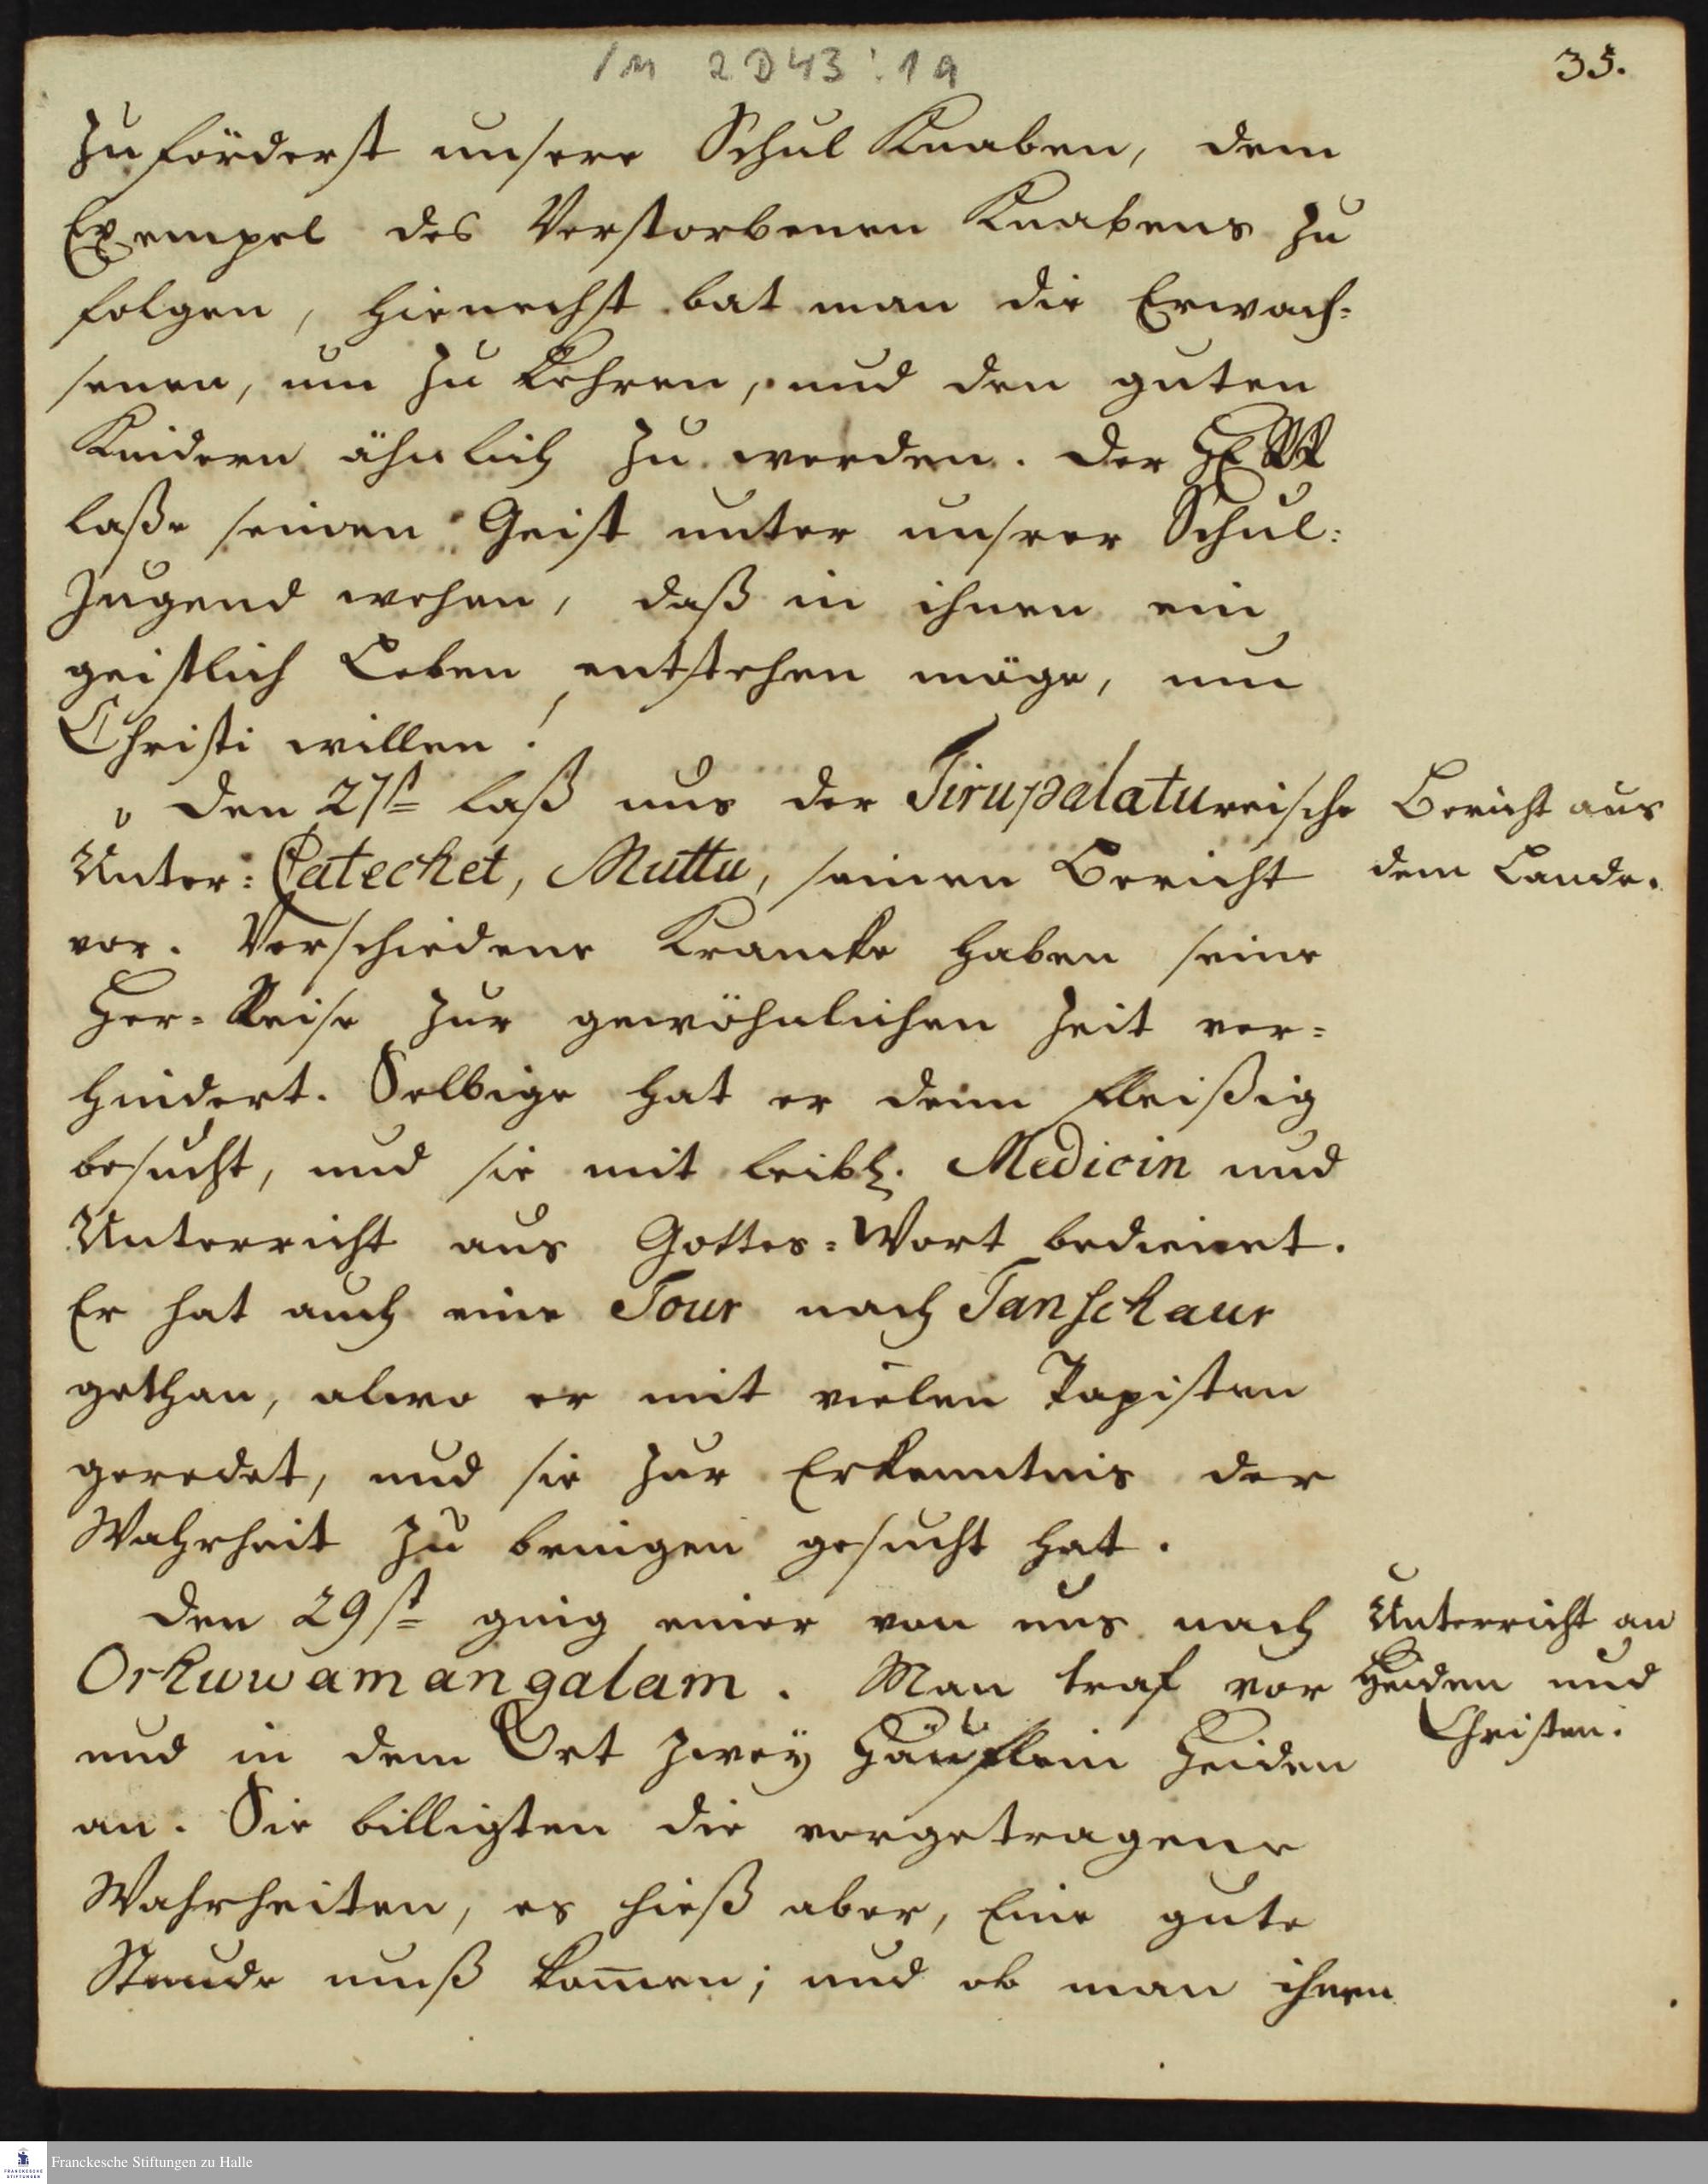 1M 2D43:19
35.
Zuförderst unsere Schul Knaben, dem
Exempel des Verstorbenen Knabens zu
folgen, hienechst bat man die Erwach-
senen, um zu kehren, und den guten
Kindern ähnlich zu werden. Der HERR
laße seinen Geist unter unsrer Schul-
Jugend wehen, daß in ihnen ein
geistlich Leben entstehen möge, um
Christi willen!
Den 27st laß uns der Tirupalatureische
Unter-Catechet, Muttu, seinen Bericht
vor. Verschiedene Krancke haben seine
Her-Reise zur gewöhnlichen Zeit ver-
hindert. Selbige hat er denn fleißig
besucht, und sie mit leibl. Medicin und
Unterricht aus Gottes-Wort bedienet.
Er hat auch eine Tour nach Tanschaur
gethan, alwo er mit vielen Papisten
geredet, und sie zur Erkenntnis der
Wahrheit zu bringen gesucht hat.
Bericht aus
dem Lande.
Den 29st ging einer von uns nach
Orkuwamangalam. Man traf vor
und in dem Ort zwey Häuflein Heiden
an. Sie billigten die vorgetragene
Wahrheiten, es hieß aber, Eine gute
Stunde muß kom̄en; und ob man ihnen
Unterricht an
Heiden und
Christen.
Franckesche Stiftungen zu Halle